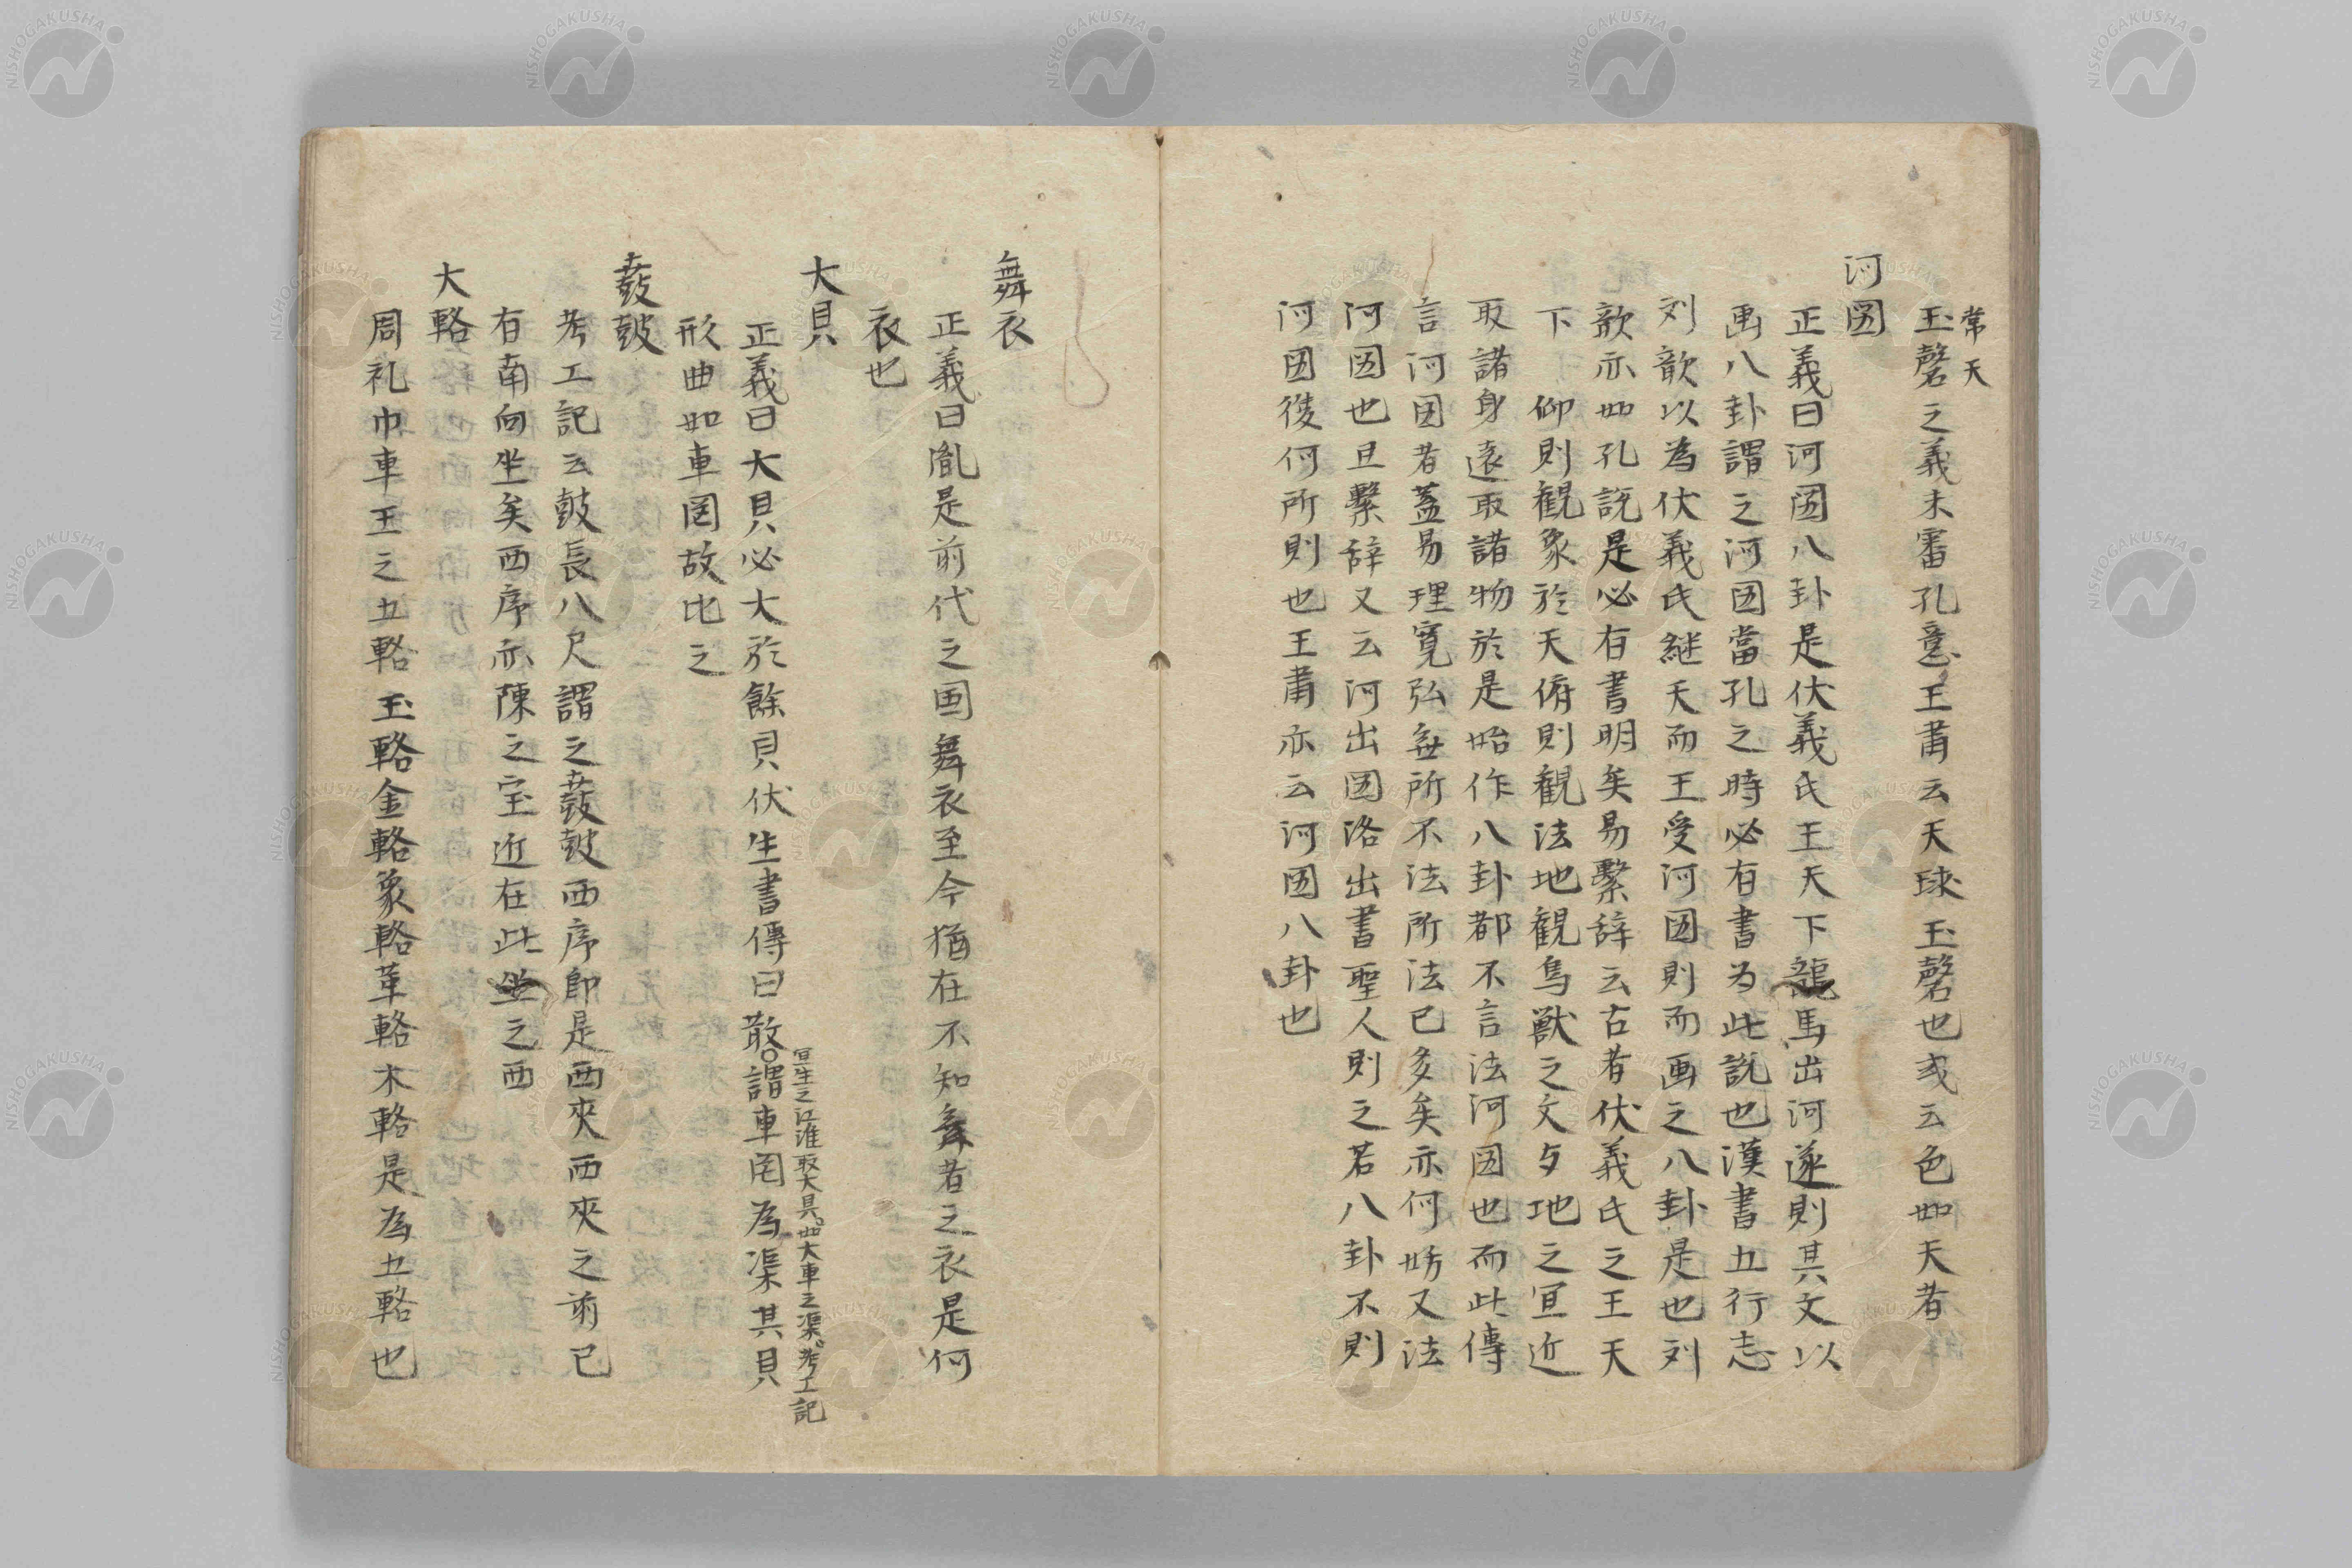 常天
玉磬之義未審孔意王肅云天球玉磬也或云色如天者
河图
正義曰河图八卦是伏義氏王天下龍馬出河遂則其文以
画八卦謂之河图當孔之時必有書为此説也漢書五行志
刘歆以為伏義氏継天而王受河图則而画之八卦是也刘
歆亦如孔説是必有書明矣易繫辞云古者伏義氏之王天
下仰則観象於天俯則観法地観鳥獣之文与地之冝近
取諸身遠取諸物於是始作八卦都不言法河图也而此傳
言河图者蓋易理寛弘無所不法所法已多矣亦何妨又法
河图也且繫辞又云河出图洛出書聖人則之若八卦不則
河图復何所則也王肅亦云河图八卦也
舞衣
正義曰胤是前代之国舞衣至今猶在不知舞者之衣是何
衣也
大貝
正義曰大貝必大於餘貝伏生書傳曰散○謂車罔為渠其貝
冝生之江淮取大貝如大車之渠考工記
形曲如車罔故比之
鼖鼓
考工記云鼓長八尺謂之鼖鼓西序即是西夾西夾之前已
有南向坐矣西序亦陳之宝近在此坐之西
大輅
周礼巾車王之五輅玉輅金輅象輅革輅木輅是為五輅也
NISHOGAKUSHA